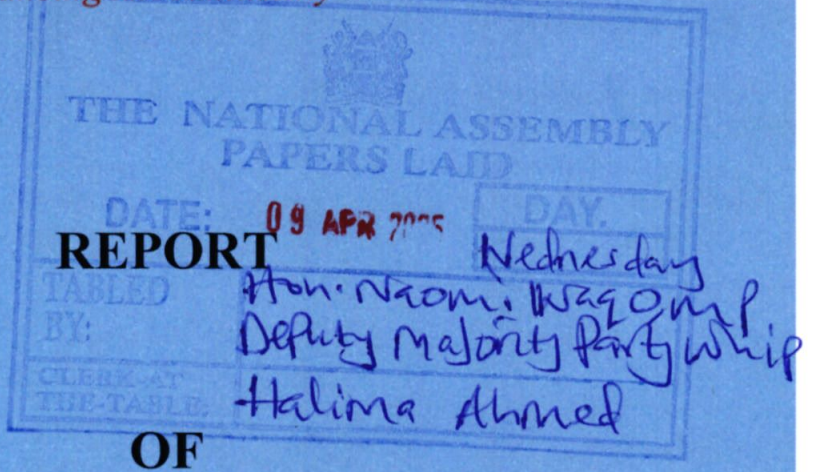 THE NATIONAL ASSEMBLY
PAPERS LAID
DATE: 09 APR 2025 DAY.
REPORT
Wednesday
TABLED BY: Hon. Naomi Waqo, MP
Deputy Majority Party Whip
CLERK-AT THE-TABLE: Halima Ahmed
OF